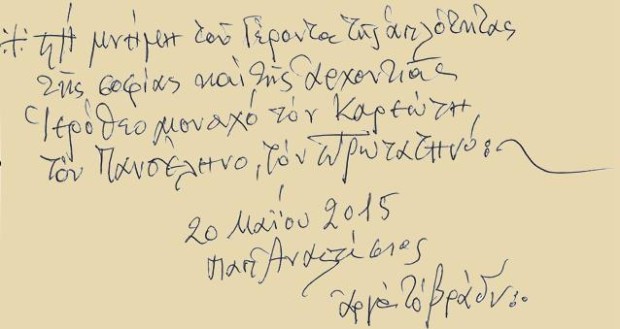 ⁜ τῇ μνήμῃ τοῦ Γέροντα τῆς ἁπλότητας
τῆς σοφίας καὶ τῆς ἀρχοντιᾶς
Ἱερόθεο μοναχό τὸν Καρεώτη,
τὸν Πανσέληνο, τὸν Πρωτατηνό:~
20 Μαΐου 2015
παπ Ἀναστάσιος
ἀργὰ τὸ βράδυ:.